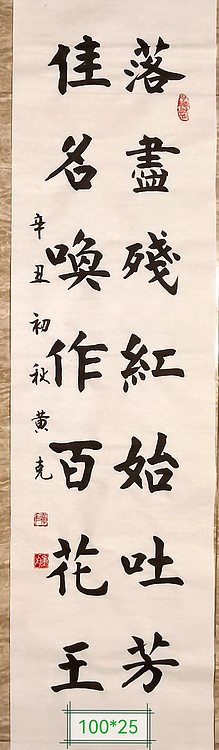 落盡殘紅始吐芳
佳名喚作百花王
辛丑初秋黄克
100*25